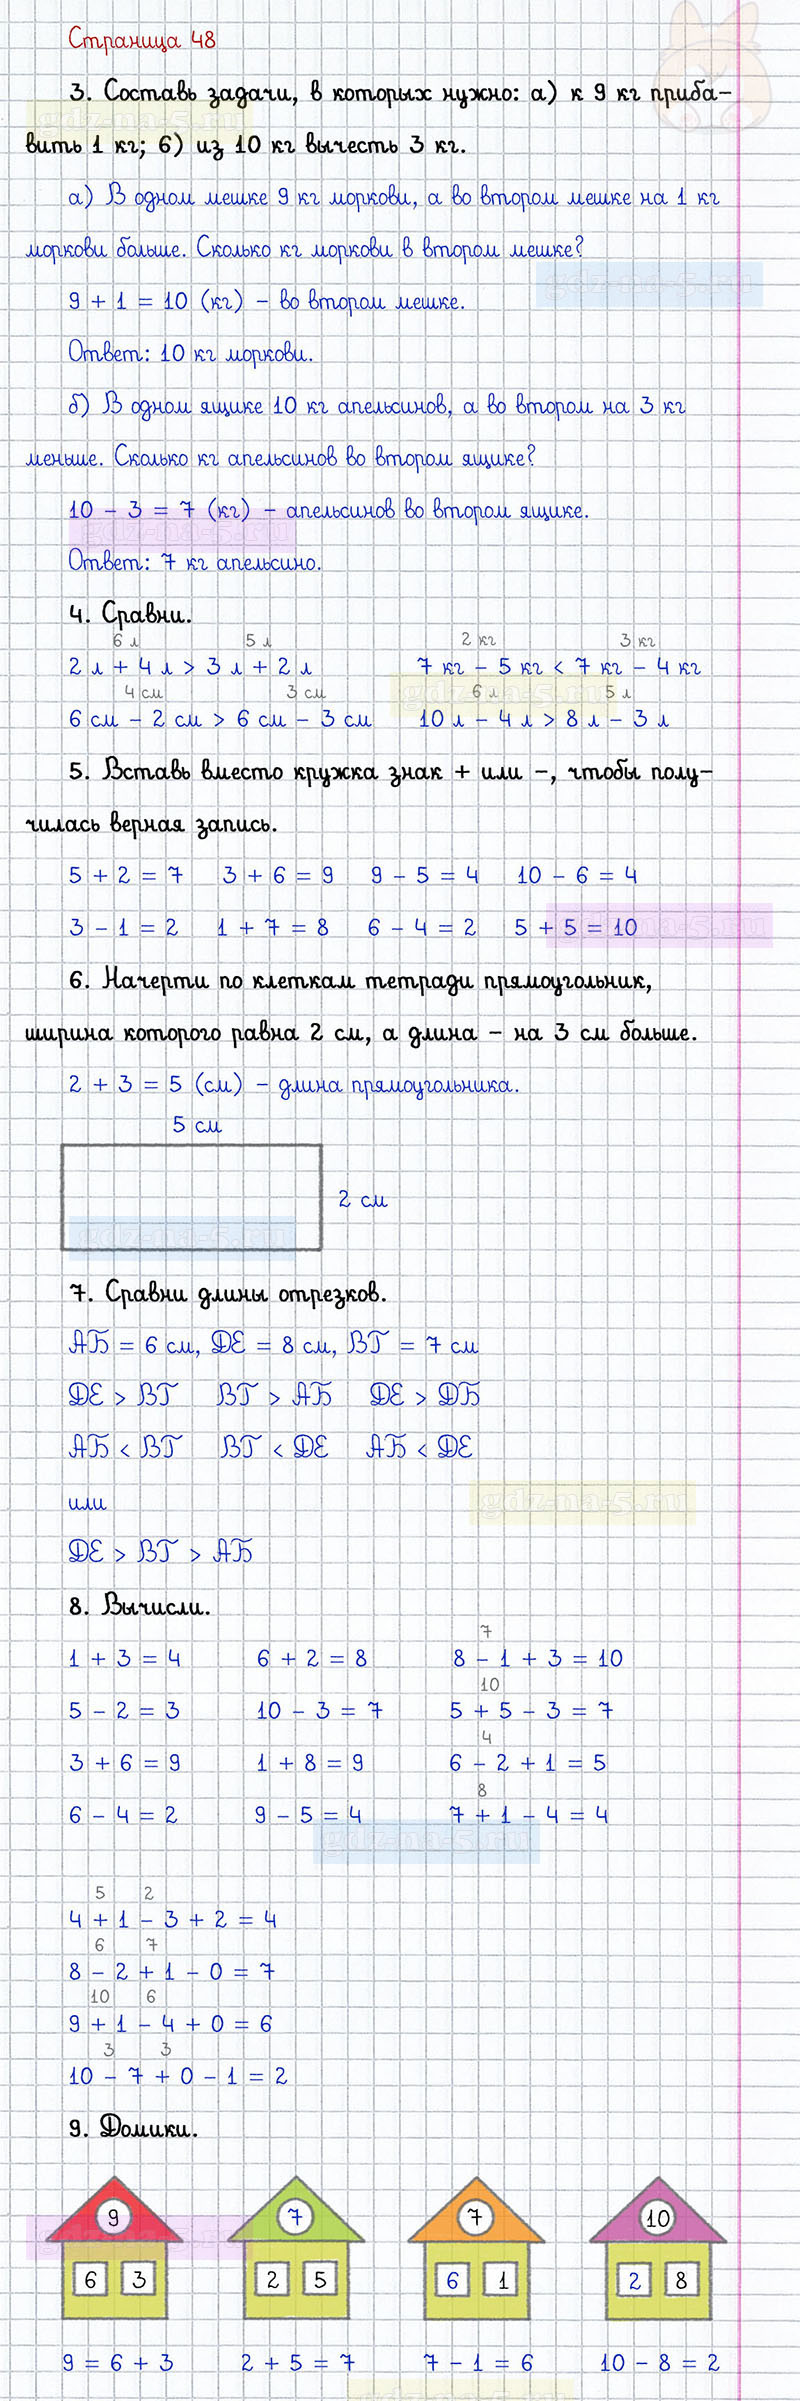 Страница 48
3. Составь задачи, в которых нужно: а) к 9 кг приба-
вить 1 кг; б) из 10 кг вычесть 3 кг.
gdz-na-5.ru
а) В одном мешке 9 кг моркови, а во втором мешке на 1 кг
моркови больше. Сколько кг моркови в втором мешке?
gdz-na-5.ru
9 + 1 = 10 (кг) – во втором мешке.
Ответ: 10 кг моркови.
б) В одном ящике 10 кг апельсинов, а во втором на 3 кг
меньше. Сколько кг апельсинов во втором ящике?
10 – 3 = 7 (кг) – апельсинов во втором ящике.
gdz-na-5.ru
Ответ: 7 кг апельсино.
4. Сравни.
6 л 5 л 2 кг 3 кг
2 л + 4 л > 3 л + 2 л 7 кг – 5 кг < 7 кг – 4 кг
4 см 3 см 6 л 5 л
gdz-na-5.ru
6 см – 2 см > 6 см – 3 см 10 л – 4 л > 8 л – 3 л
5. Вставь вместо кружка знак + или –, чтобы полу-
чилась верная запись.
5 + 2 = 7 3 + 6 = 9 9 – 5 = 4 10 – 6 = 4
3 – 1 = 2 1 + 7 = 8 6 – 4 = 2 5 + 5 = 10
gdz-na-5.ru
6. Начерти по клеткам тетради прямоугольник,
ширина которого равна 2 см, а длина – на 3 см больше.
2 + 3 = 5 (см) – длина прямоугольника.
5 см
2 см
gdz-na-5.ru
7. Сравни длины отрезков.
АБ = 6 см, ДЕ = 8 см, ВГ = 7 см
ДЕ > ВГ ВГ > АБ ДЕ > ДБ
АБ < ВГ ВГ < ДЕ АБ < ДЕ
или
gdz-na-5.ru
ДЕ > ВГ > АБ
8. Вычисли.
7
1 + 3 = 4 6 + 2 = 8 8 – 1 + 3 = 10
10
5 – 2 = 3 10 – 3 = 7 5 + 5 – 3 = 7
4
3 + 6 = 9 1 + 8 = 9 6 – 2 + 1 = 5
8
6 – 4 = 2 9 – 5 = 4 7 + 1 – 4 = 4
gdz-na-5.ru
5 2
4 + 1 – 3 + 2 = 4
6 7
8 – 2 + 1 – 0 = 7
10 6
9 + 1 – 4 + 0 = 6
3 3
10 – 7 + 0 – 1 = 2
9. Домики.
9 7 7 10
gdz-na-5.ru
6 3 2 5 6 1 2 8
9 = 6 + 3 2 + 5 = 7 7 – 1 = 6 10 – 8 = 2
gdz-na-5.ru